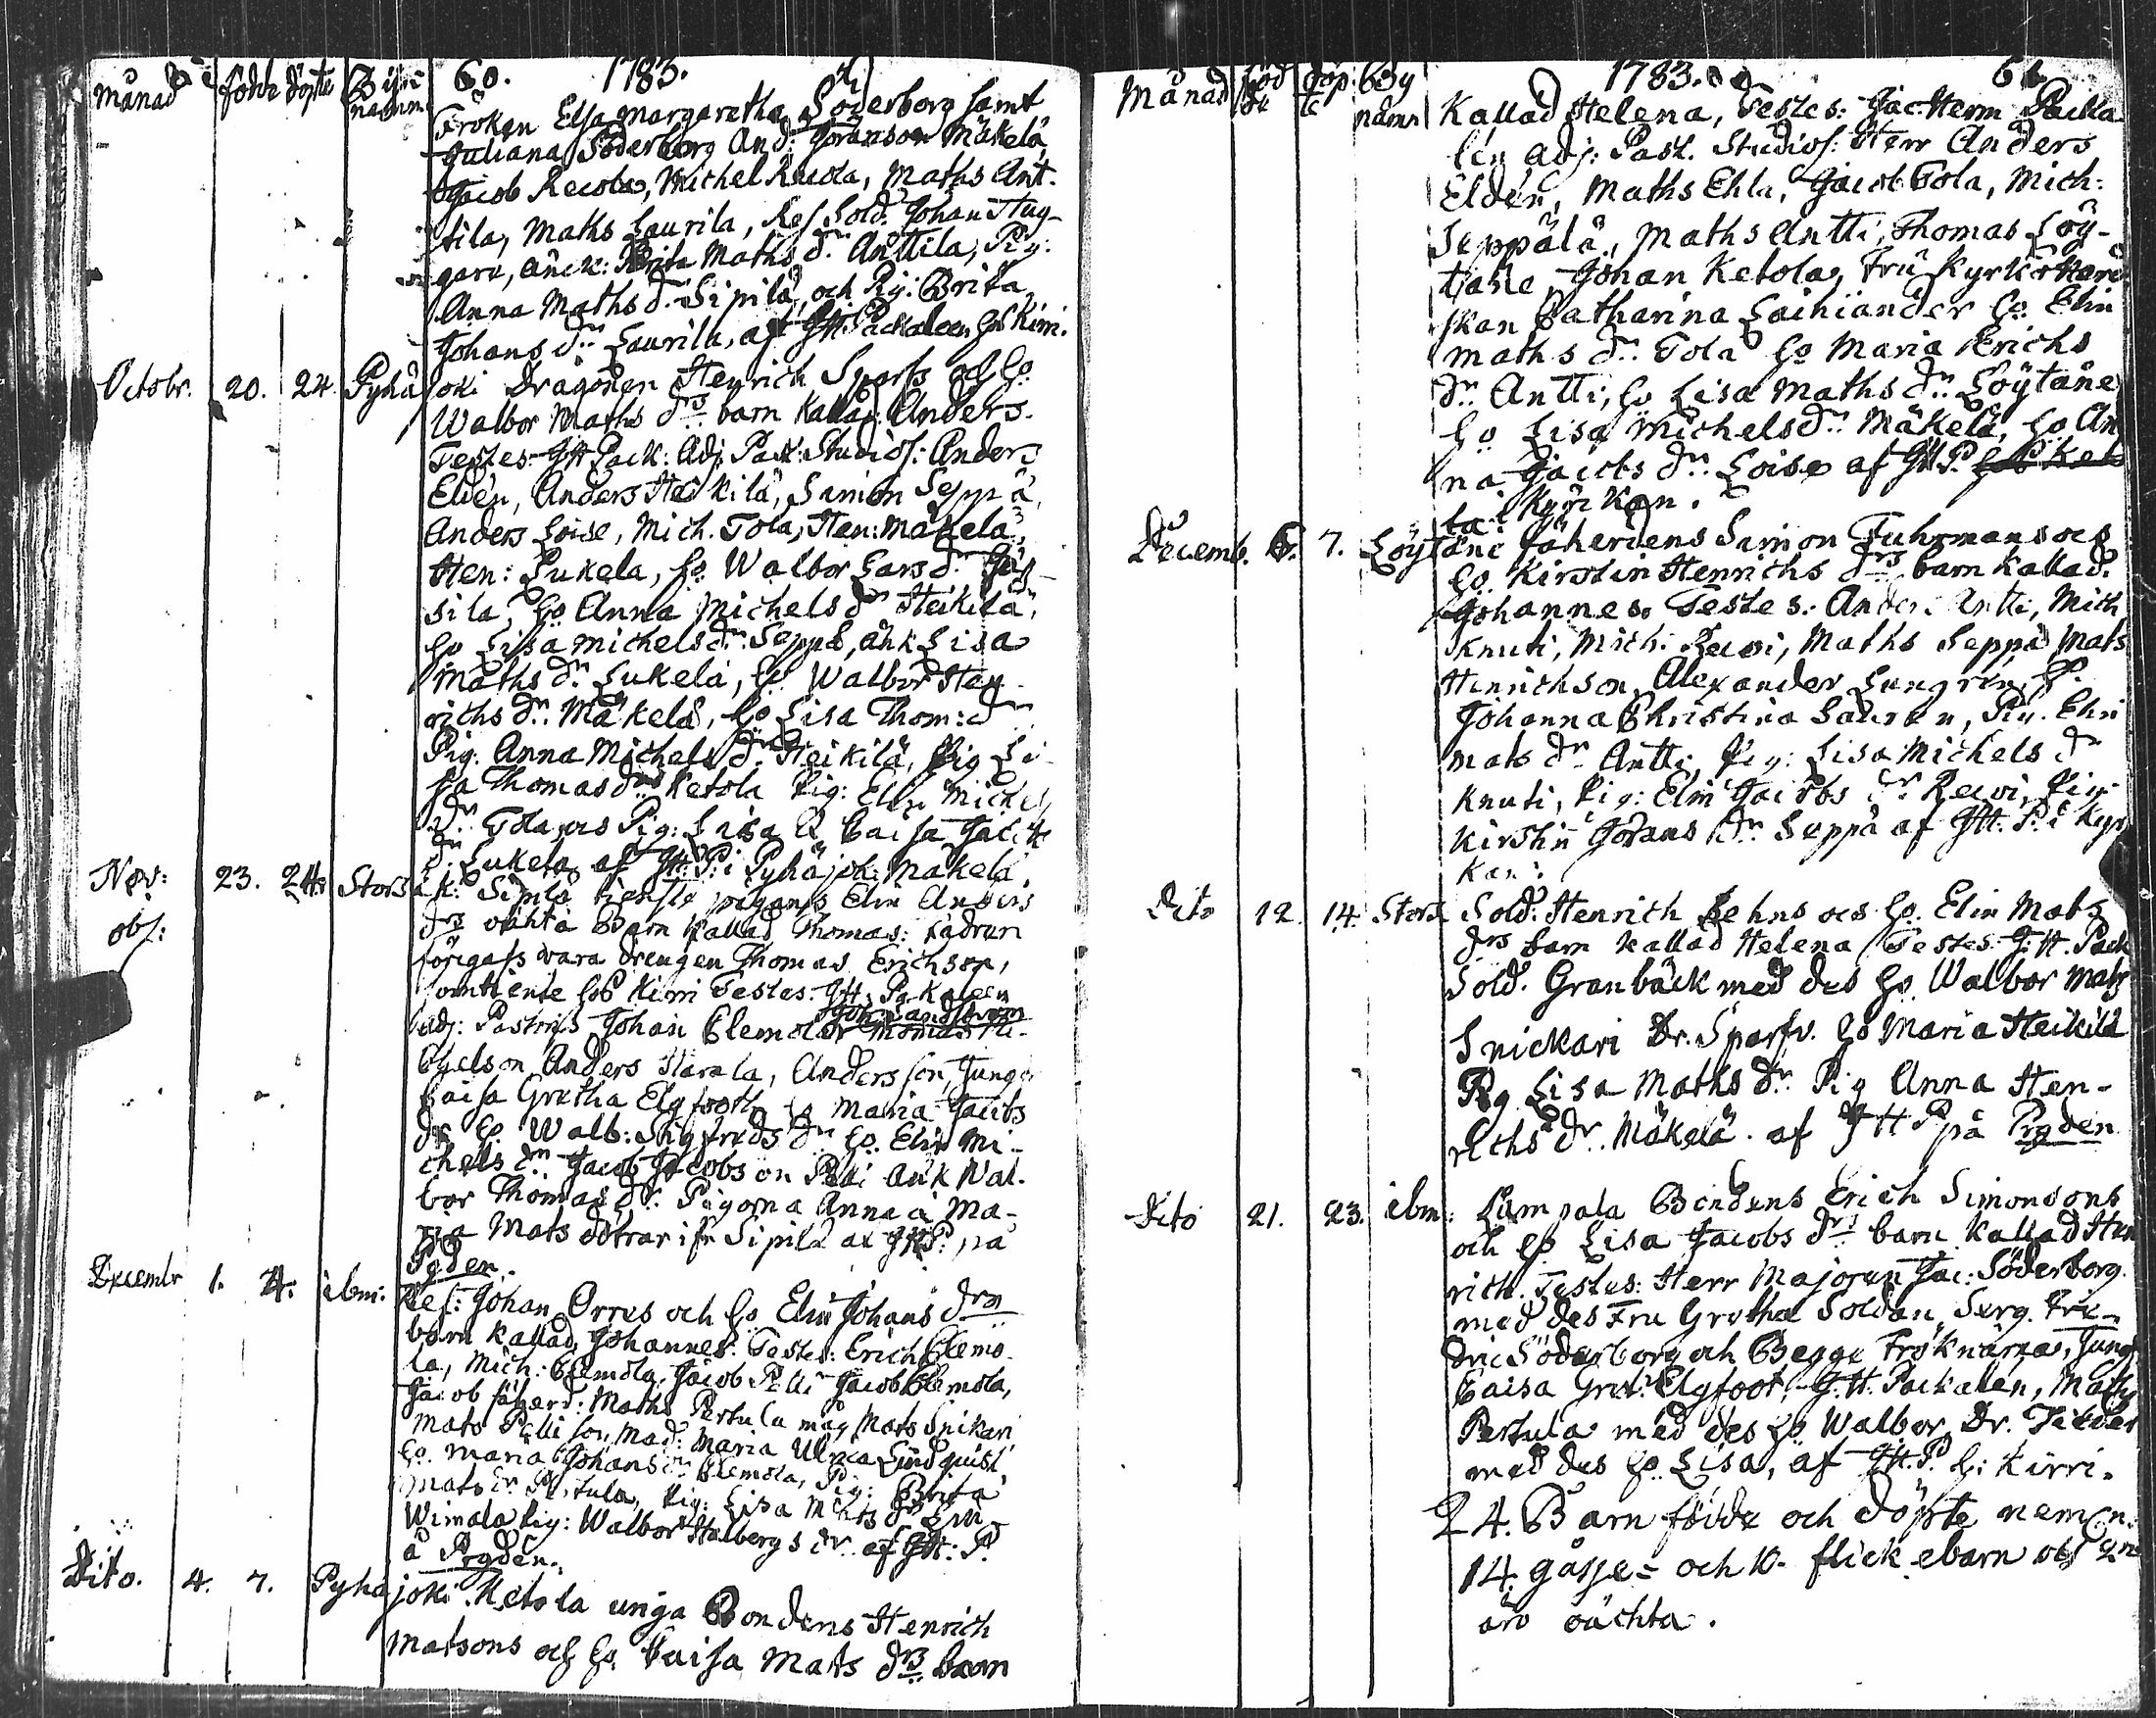 Månad födde döpte Byne namn 60. 1783.
Fröken Elsa Margaretha Söderborg samt
Juliana Söderborg And: Göranson Mäkelä
Jacob Recola, Michel Recola, Maths Ant-
tila, Maths Laurila, Ref Sold. Johan Hug-
gare, änck: Brita Maths dr. Anttila, Pig:
Anna Maths dr. Sipilä, och Pig: Brita
Johans dr. Laurila, af JH Packaleen hos Kirri.
Octobr. 20. 24. Pyhäjoki Dragonen Henrich Sparfs och hо
Walbor Maths drs barn kallad Anders.
Testes: JH Pack: Adj: Past: Studios: Anders
Eldén, Anders Heikilä, Simon Seppä,
Anders Loise, Mich. Tola, Hen: Mäkelä,
Hen: Lukela, ho Walbor Lars dr
sila, ho Anna Michels dr Heikilä,
ho Lisa Michels dr. Seppä, änk Lisa
Maths dr. Lukela, ho Walbor Hen-
richs dr. Mäkelä, ho Lisa Thom: dr
Pig: Anna Michels dr. Heikilä, Pig Li-
sa Thomas dr Ketola Pig: Elin Michels
dr. Tola, Pig: Lisa & Caisa Jacobs
dr. Lukela af JH: P: i Pyhäjok: Mäkelä.
Nov: 23. 24. Storsåk: Sipilä tienste pigans Elin Anders
obs: drs oächta Barn kallad Thomas: fadren
föregafs vara drengen Thomas Erichson,
som tiente hos Kirri Testes: JH Pakaleen
adj: Pastoris Johan Clemola Joh: Sandström
Anders Harala, Andersson, Jungfr
Caisa Gretha Elgfooth ho Maria Jacobs
dr ho Walb: Sigfreds dr ho Elin Mi-
chels dr. Jacob Jacobson Pelli änk Wal-
bor Thomas dr. Pigorna Anna å Ma-
ria Mats döttrar ifr Sipilä af JHP: på
Pgden.
Decembr 1. 4. ibm: Ref: Johan Orres och ho Elin Johans drs
barn kallad Johannes. Testes: Erich Clemo-
la, Mich: Clemola, Jacob Pelli Jacob Clemola,
Jacob fäherd: Maths Pertula måg Mats Snikari
Mats Pelli son, Mad: Maria Ulrica Lindquist
ho Maria Johans dr Clemola, Pig: Brita
Mats dr Pertula, Pig: Lisa Mats dr
Wimala Pig: Walbor Stalbergs dr. af JH: P.
å Pgden.
Dito. 4. 7. Pyhäjoki Ketola unga Bondens Henrich
Matsons och ho. Caisa Mats drs barn
Månad föd de döp te By namn 1783. 61
Kallad Helena, Testes: Jac: Herm Packa
lén adj: Past. Studios: Herr Anders
Eldén, Maths Ehla, Jacob Tola, Mich:
Seppälä, Maths Antti, Thomas Löy-
täne, Johan Ketola, Fru Kyrkoher
skan Catharina Laihiander ho. Elin
Maths dr. Tola ho Maria Erichs
dr. Antti, ho Lisa Maths dr. Löytäne
ho Lisa Michels dr. Mäkelä, ho An
na Jacobs dr. Loise af JH P.
i Kyrkan.
Decemb. 6. 7. Löytäne fäherdens Simon Fuhrmans och
ho Kirstin Henrichs drs barn kallad
Johannes. Testes: Anders Antti, Mich
Knuti, Mich: Rewi, Maths Seppä Mats
Hinrichson, Alexander Lungren,
Johanna Christina Lauren, Pig. Elin
Mats dr Antti Pig: Lisa Michels dr
Knuti, Pig: Elin Jacobs dr Rewi, Pig:
Kirstin Jorans dr Seppä af JH: P. i Kyr
kan.
Dito 12. 14. Stors Sold. Henrich Lehns och ho. Elin Mats
drs barn kallad Helena Testes: J: H. Pack
Sold. Granbäck med des ho Walbor Mats
Snickari Dr. Sparfv. ho Maria Heikilä
Pig Lisa Maths dr. Pig Anna Hen-
richs dr. Mäkelä. af J H P på Pgden
Dito 21. 23. ibm: Lampala Bondens Erich Simonsons
och ho Lisa Jacobs drs barn kallad Hen
rich. Testes: Herr Majoren Jac: Söderborg
med des Fru Gretha Soldan, Serg. Fre-
dric Söderborg och Begge Fröknarna, Jungf
Caisa Gret: Elgfoot, J. H. Packalen, Maths
Pertula med des ho Walbor, Dr.
med des ho Lisa, af JH. P. h: Kirri.
24. Barn födde och döpte nemln.
14. gåsse- och 10. flickebarn obs 2ne
äro oächta.